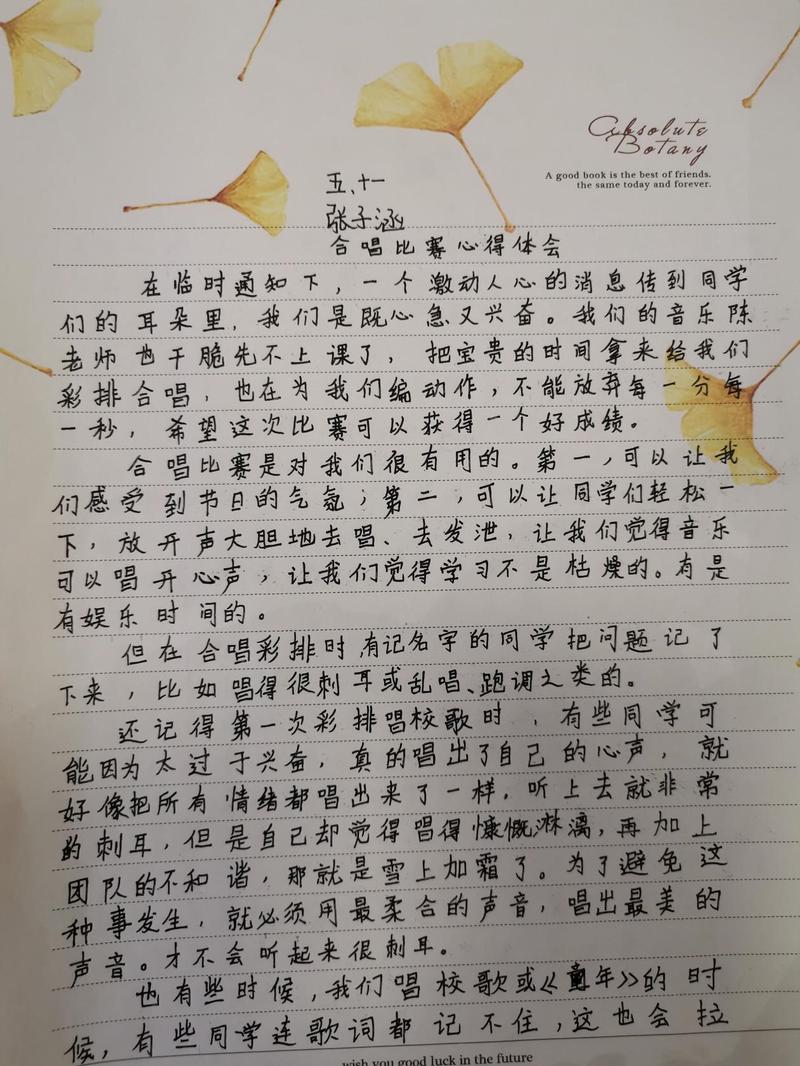 Absolute
Botany
A good book is the best of friends.
the same today and forever.
五、十一
张子涵
合唱比赛心得体会
在临时通知下，一个激动人心的消息传到同学
们的耳朵里，我们是既心急又兴奋。我们的音乐陈
老师也干脆先不上课了，把宝贵的时间拿来给我们
彩排合唱，也在为我们编动作，不能放弃每一分每
一秒，希望这次比赛可以获得一个好成绩。
合唱比赛是对我们很有用的。第一，可以让我
们感受到节日的气氛；第二，可以让同学们轻松一
下，放开声大胆地去唱、去发泄，让我们觉得音乐
可以唱开心声，让我们觉得学习不是枯燥的。有是
有娱乐时间的。
但在合唱彩排时，有记名字的同学把问题记了
下来，比如唱得很刺耳或乱唱、跑调之类的。
还记得第一次彩排唱校歌时，有些同学可
能因为太过于兴奋，真的唱出了自己的心声，就
好像把所有情绪都唱出来了一样，听上去就非常
的刺耳，但是自己却觉得唱得慷慨淋漓，再加上
团队的不和谐，那就是雪上加霜了。为了避免这
种事发生，就必须用最柔合的声音，唱出最美的
声音。才不会听起来很刺耳。
也有些时候，我们唱校歌或《童年》的时
候，有些同学连歌词都记不住，这也会拉
wish you good luck in the future